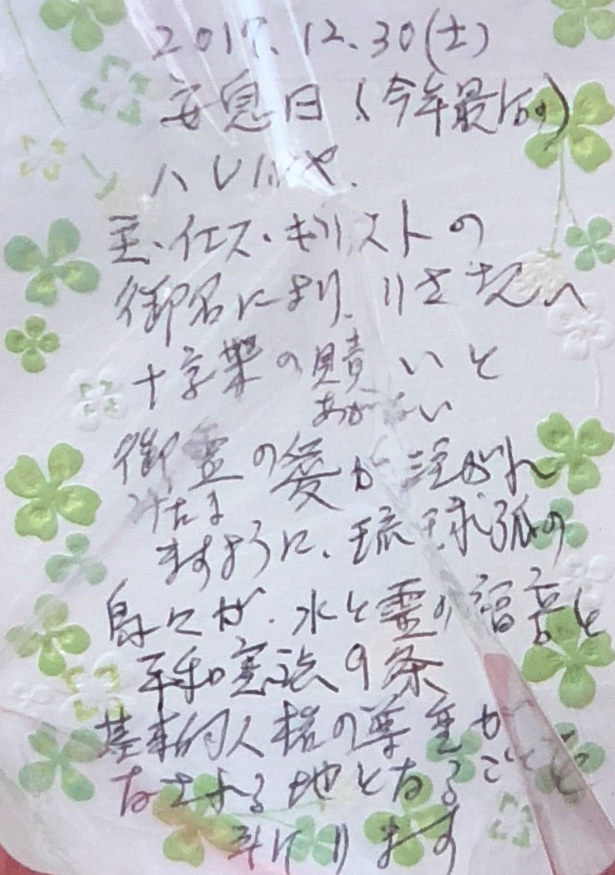 2017.12.30(土)
安息日(今年最后の)
ハレルヤ.
主・イエス・キリストの
御名により.
十字架の贖いと
あがない
御霊の愛が注がれ
みたま
ますように、琉球弧の
島々が、水と霊の福音と
平和憲法9条
基本的人権の尊重が
なされる地となること
を
祈ります